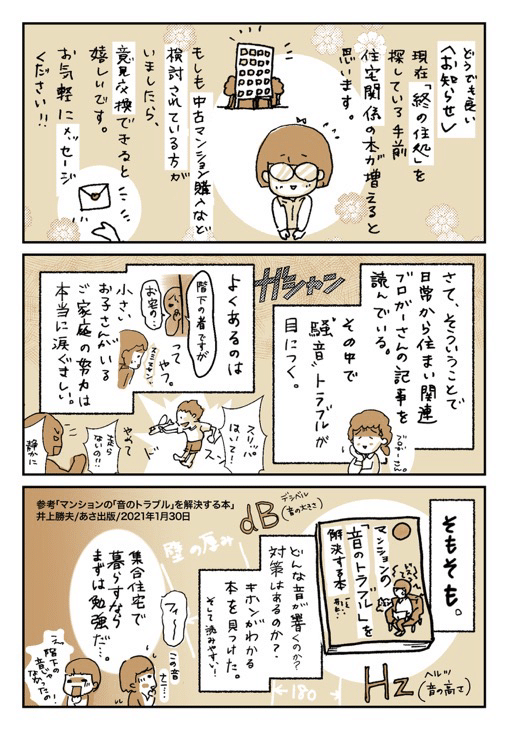 どうでも良い
〈お知らせ〉
現在「終の住処」を
探している手前
住宅関係の本が増えると
思います。
もしも中古マンション購入など
検討されている方が
いましたら、
意見交換できると
嬉しいです。
お気軽にメッセージ
ください!!
さて、そういうことで
日常から住まい関連
ブロガーさんの記事を
読んでいる。
その中で
"騒音"トラブルが
目につく。
ブロガーさん
ガシャン
よくあるのは
階下の者ですが
お宅の…
って
やつ。
小さい
お子さんがいる
ご家庭の努力は
本当に涙ぐましい。
スリッパ
はいて!
ドスン
やめて
走ら
ないの!!
静かに
そもそも。
マンションの
「音のトラブル」を
解決する本
参考「マンションの「音のトラブル」を解決する本」
井上勝夫/あさ出版/2021年1月30日
dB
デシベル
(音の大きさ)
壁の厚み
どんな音が響くのか?
対策はあるのか?
キホンがわかる
本を見つけた。
そして読みやすい!
Hz
ヘルツ
(音の高さ)
180
集合住宅で
暮らすなら
まずは勉強だ…。
この音
ナニ…
え、階下の
音じゃ
なかったの!